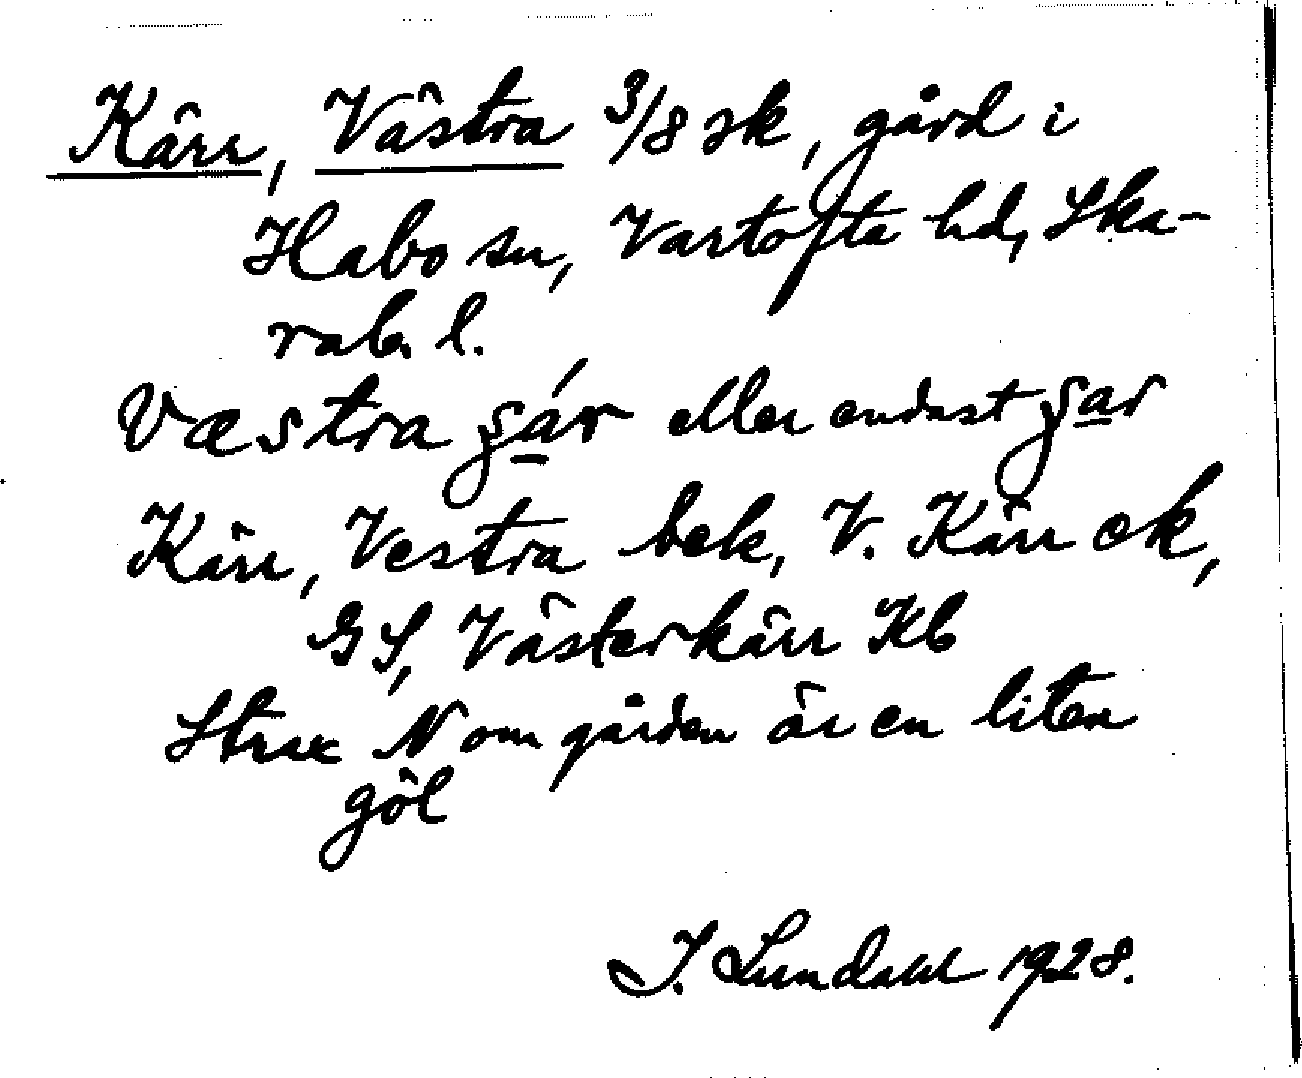 Kärr, Västra 3/8 sk, gård i
Habo sn, Vartofta hd, Ska-
rab. l.
Væstra ʂár eller endast ʂar
Kärr, Vestra bek, V. Kärr ek,
GS, Västerkärr Kb
Strax N om gården är en liten
göl
I. Lundahl 1928.